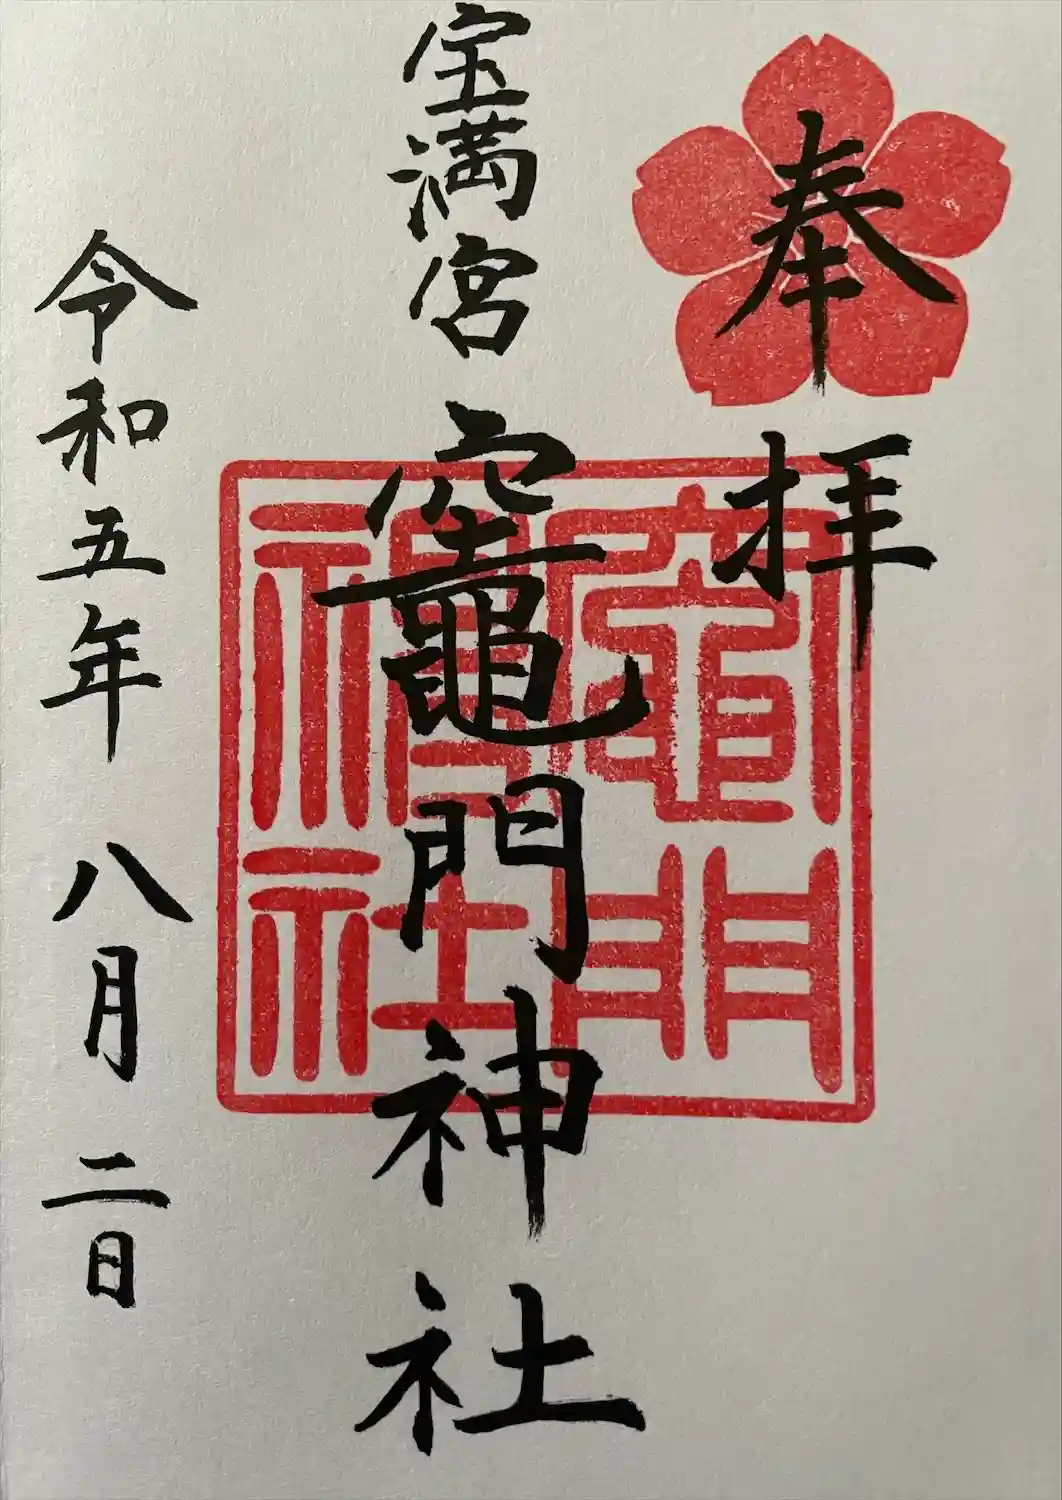 奉拝
宝満宮 竈門神社
竈門神社
令和五年 八月二日